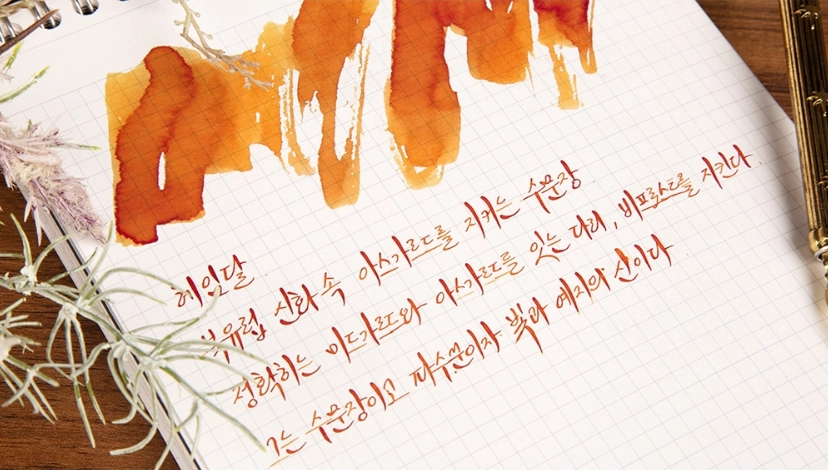 헤임달
북유럽 신화 속 아스가르드를 지키는 수문장
미드가르드와 아스가르드를 잇는 다리, 비프로스트를 지킨다.
그는 수문장이고 파수꾼이자 빛과 예지의 신이다